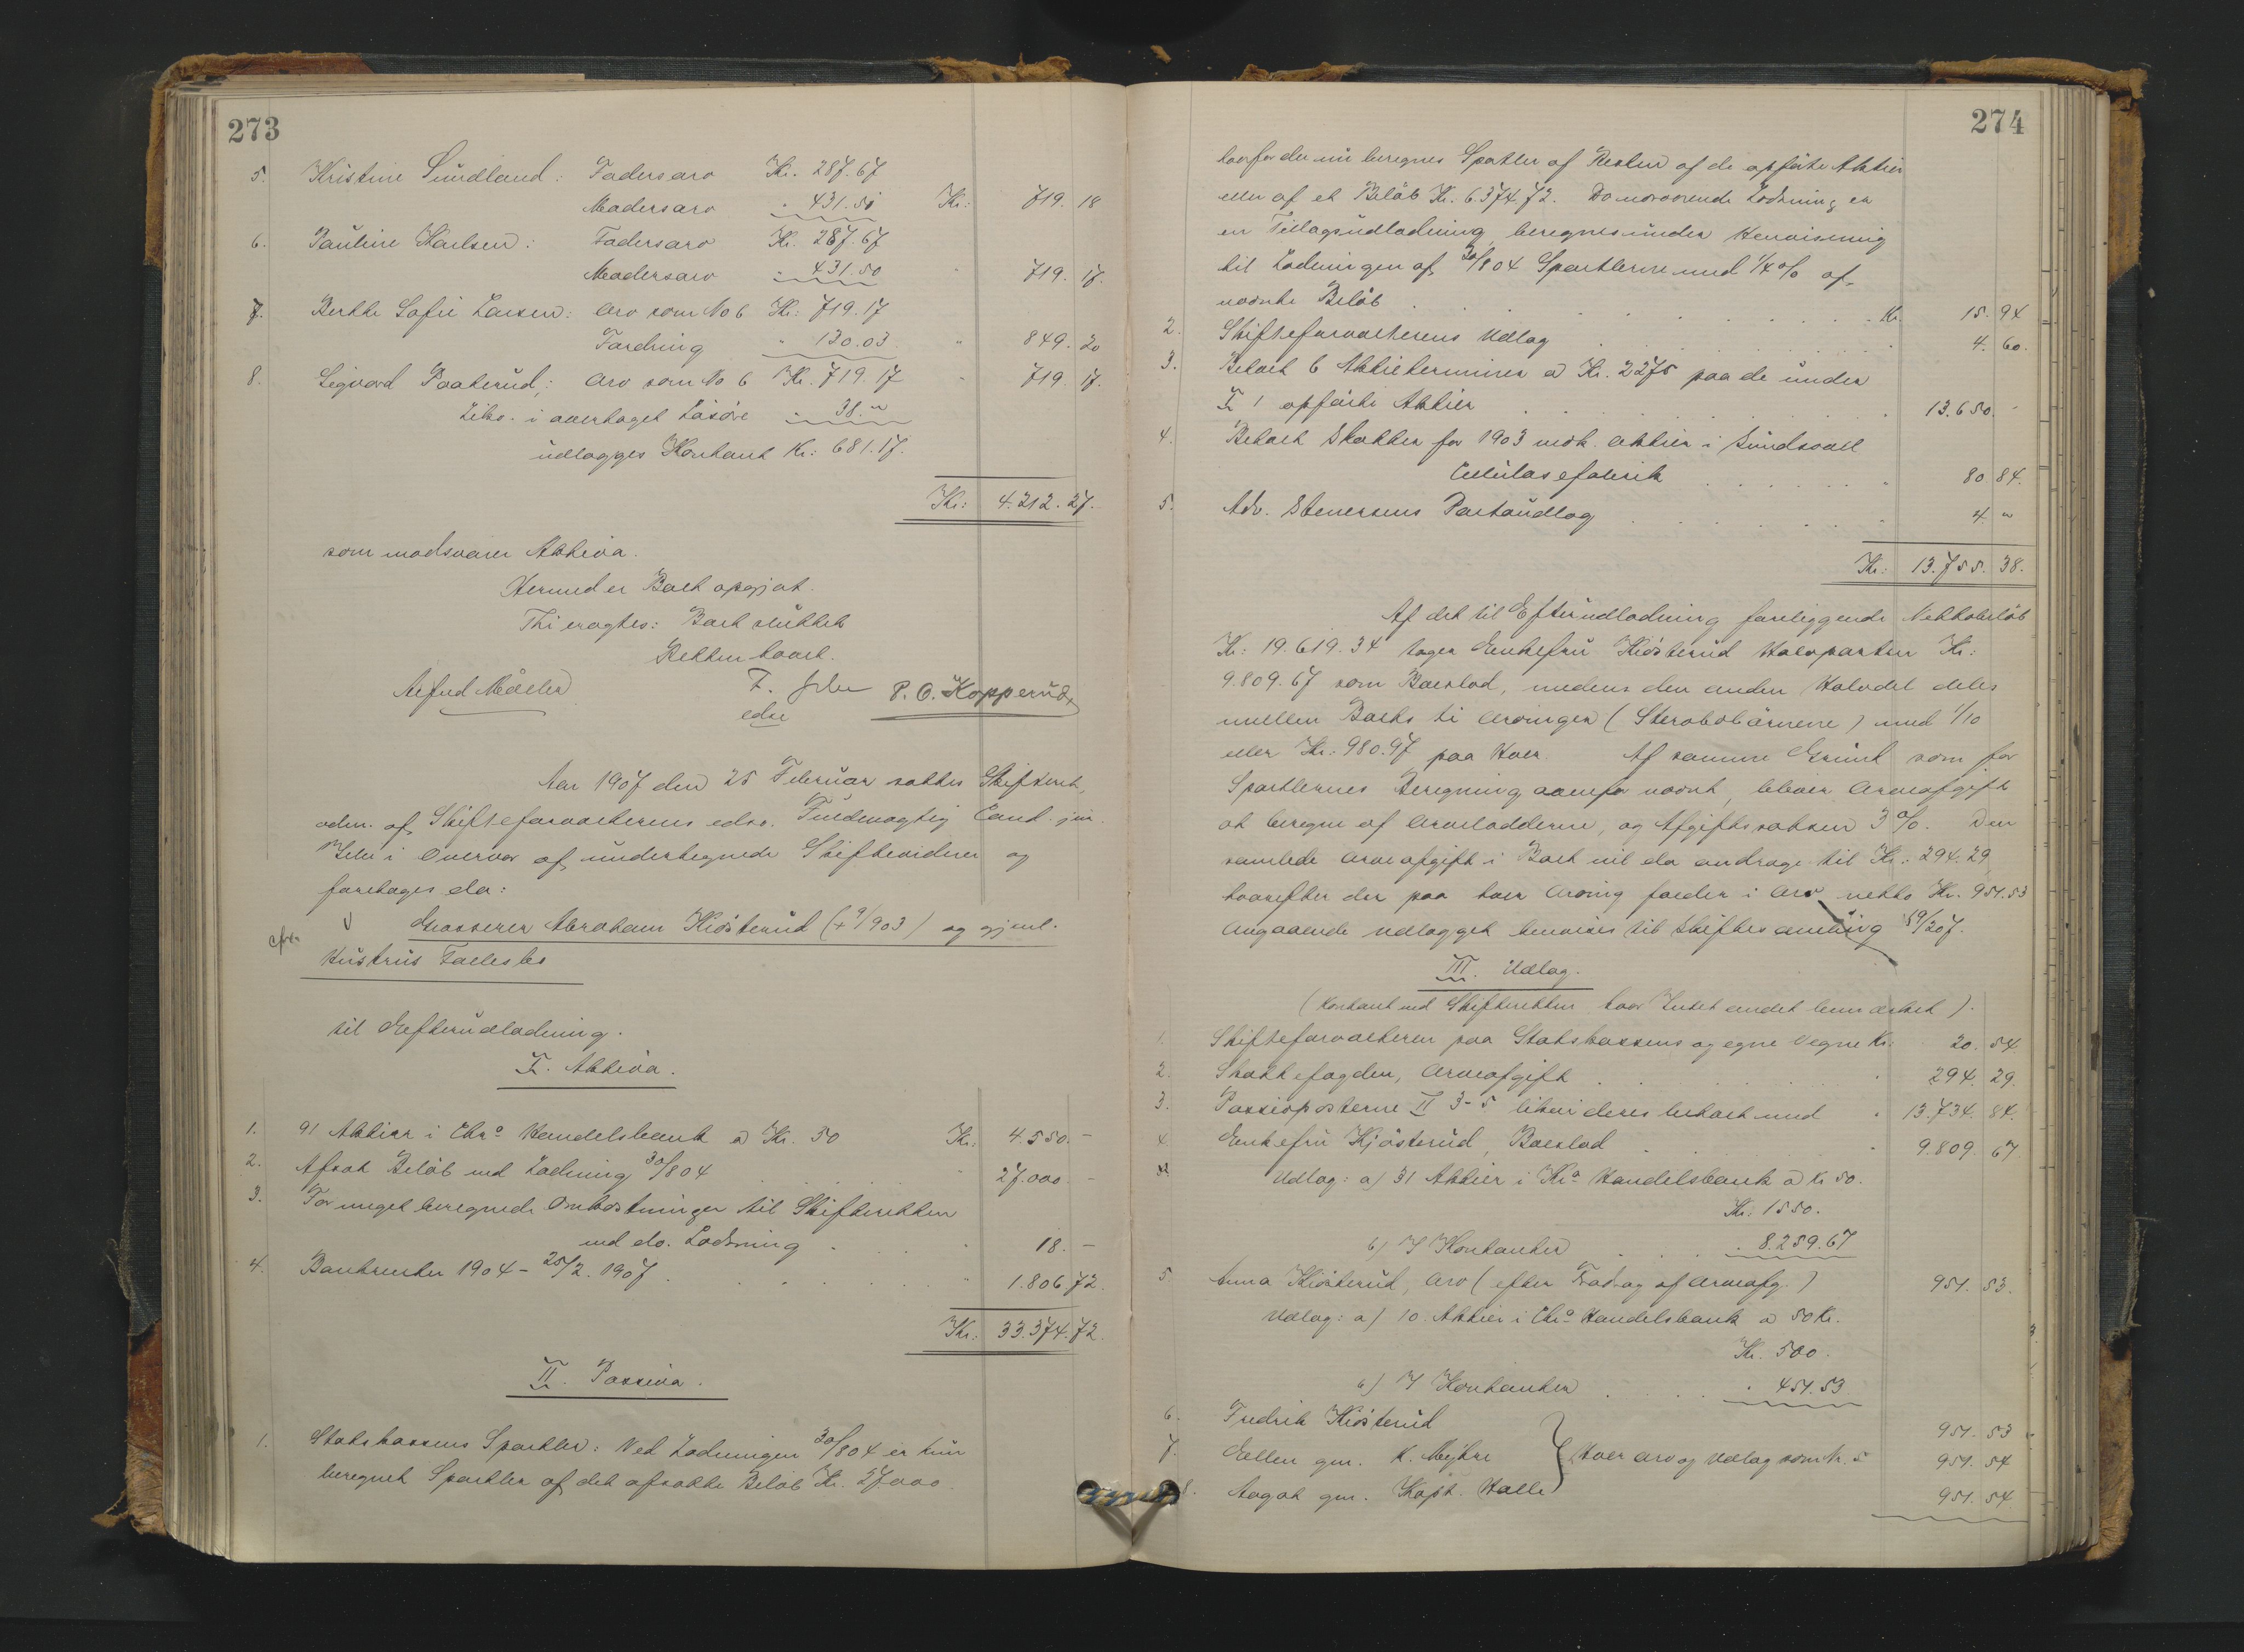 273
5. Kristine Sundland: Fadersarv Kr. 287.67
Modersarv " 431.51 Kr: 719. 18
6. Pauline Karlsen: Fadersarv Kr. 287.67
Modersarv " 431.50 " 719. 17.
7. Berthe Sofie Larsen: Arv som No 6 Kr: 719.17
Fordring " 130.03 " 849. 20
8. Sigvard Paaterud; Arv som No 6 Kr. 719.17 " 719. 17.
i overtaget Løsøre " 38."
udlægges Kontant Kr: 681.17.
Kr: 4.212.27.
som modsvarer Aktiva.
Hermed er Boet opgjort.
Thi eragtes: Boet sluttet
Retten hævet.
Alfred Møller F. P. O. Kopperud
edsv
Aar 1907 den 25 Februar sattes Skifteret,
adm. af Skifteforvalterens edsv. Fuldmægtig Cand. jur.
i Overvær af undertegnede Skiftevidner og
foretoges da:
Grosserer Abraham Kiøsterud (+ 9/903) og gjenl.
Hustrus Fællesbo
til Efterudlodning.
I. Aktiva.
1. 91 Aktier i Chra Handelsbank a Kr. 50 Kr: 4.550.-
2. Afsat Beløb ved Lodning 30/8 04 . . . " 27.000 -
3. For meget beregnede Omkostninger til Skifteretten
ved do. Lodning . . . " 18. -
4. Bankrenter 1904 - 25/2. 1907 . . . " 1.806 72.
Kr: 33.374.72.
II. Passiva.
1. Statskassens Sportler: Ved Lodningen 30/8 04 er kun
beregnet Sportler af det afsatte Beløb Kr. 27000.
274
hvorfor der nu beregnes Sportler af Resten af de opførte Aktier
eller af et Beløb Kr. 6.374.72. Da nærværende Lodning er
en Tillægsudlodning beregnes under Henvisning
til Lodningen af 30/8 04 Sportlerne med 1/4 % af
nævnte Beløb . . . Kr. 15. 94
2. Skifteforvalterens Udlæg . . . " 4. 60.
3. Betalt 6 Aktieterminer a Kr. 2275 paa de under
I 1 opførte Aktier . . . " 13.650. -
4. Betalt Skatter for 1903 vedk. Aktier i Sundsvall
Cellulosefabrik . . . " 80. 84.
5. Adv. Stenersens Portoudlæg . . . " 4. "
Kr: 13.755. 38.
Af det til Efterudlodning foreliggende Nettobeløb
Kr: 19.619.34 tager Enkefru Kiøsterud Halvparten Kr:
9.809.67 som Boeslod, medens den anden Halvdel deles
mellem Boets ti Arvinger (Stervbobørnene) med 1/10
eller Kr: 980.97 paa Hver. Af samme Grund som for
Sportlernes Beregning ovenfor nævnt, bliver Arveafgift
at beregne af Arvelodderne, og Afgiftssatsen 3 %. Den
samlede Arveafgift i Boet vil da andrage til Kr.: 294.29
hvorefter der paa hver Arving falder i Arv netto Kr. 951.53
Angaaende Udlægget henvises til Skiftesamling 19/2 07.
III. Udlæg.
(Kontant ved Skifteretten hvor Intet andet bemærket).
1. Skifteforvalteren paa Statskassens og egne Vegne Kr: 20. 54
2. Skattefogden, Arveafgift . . . " 294. 29.
3. Passivposterne II 3-5 betalt med " 13.734. 84.
4. Enkefru Kjøsterud, Boeslod . . . " 9.809. 67
Udlæg: a) 31 Aktier i Kra Handelsbank a Kr 50.
Kr: 1550.
b) I Kontanter . . . " 8.259.67
5. Anna Kiøsterud, Arv (efter Fradrag af Arveafg.) 951. 53.
Udlæg: a) 10 Aktier i Chra Handelsbank a 50 Kr.
Kr. 500.
b) I Kontanter . . . " 451.53
6. Fredrik Kiøsterud 951. 53
7. Ellen gm. K. Myhre } Hver Arv og Udlæg som Nr. 5 951. 54
8. Aagot gm. Kapt. Halle 951. 54